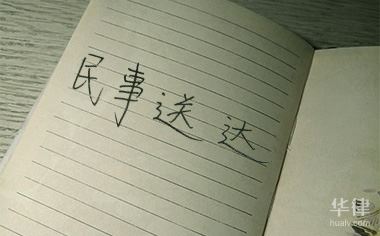 民事送达
华律
hualv.com